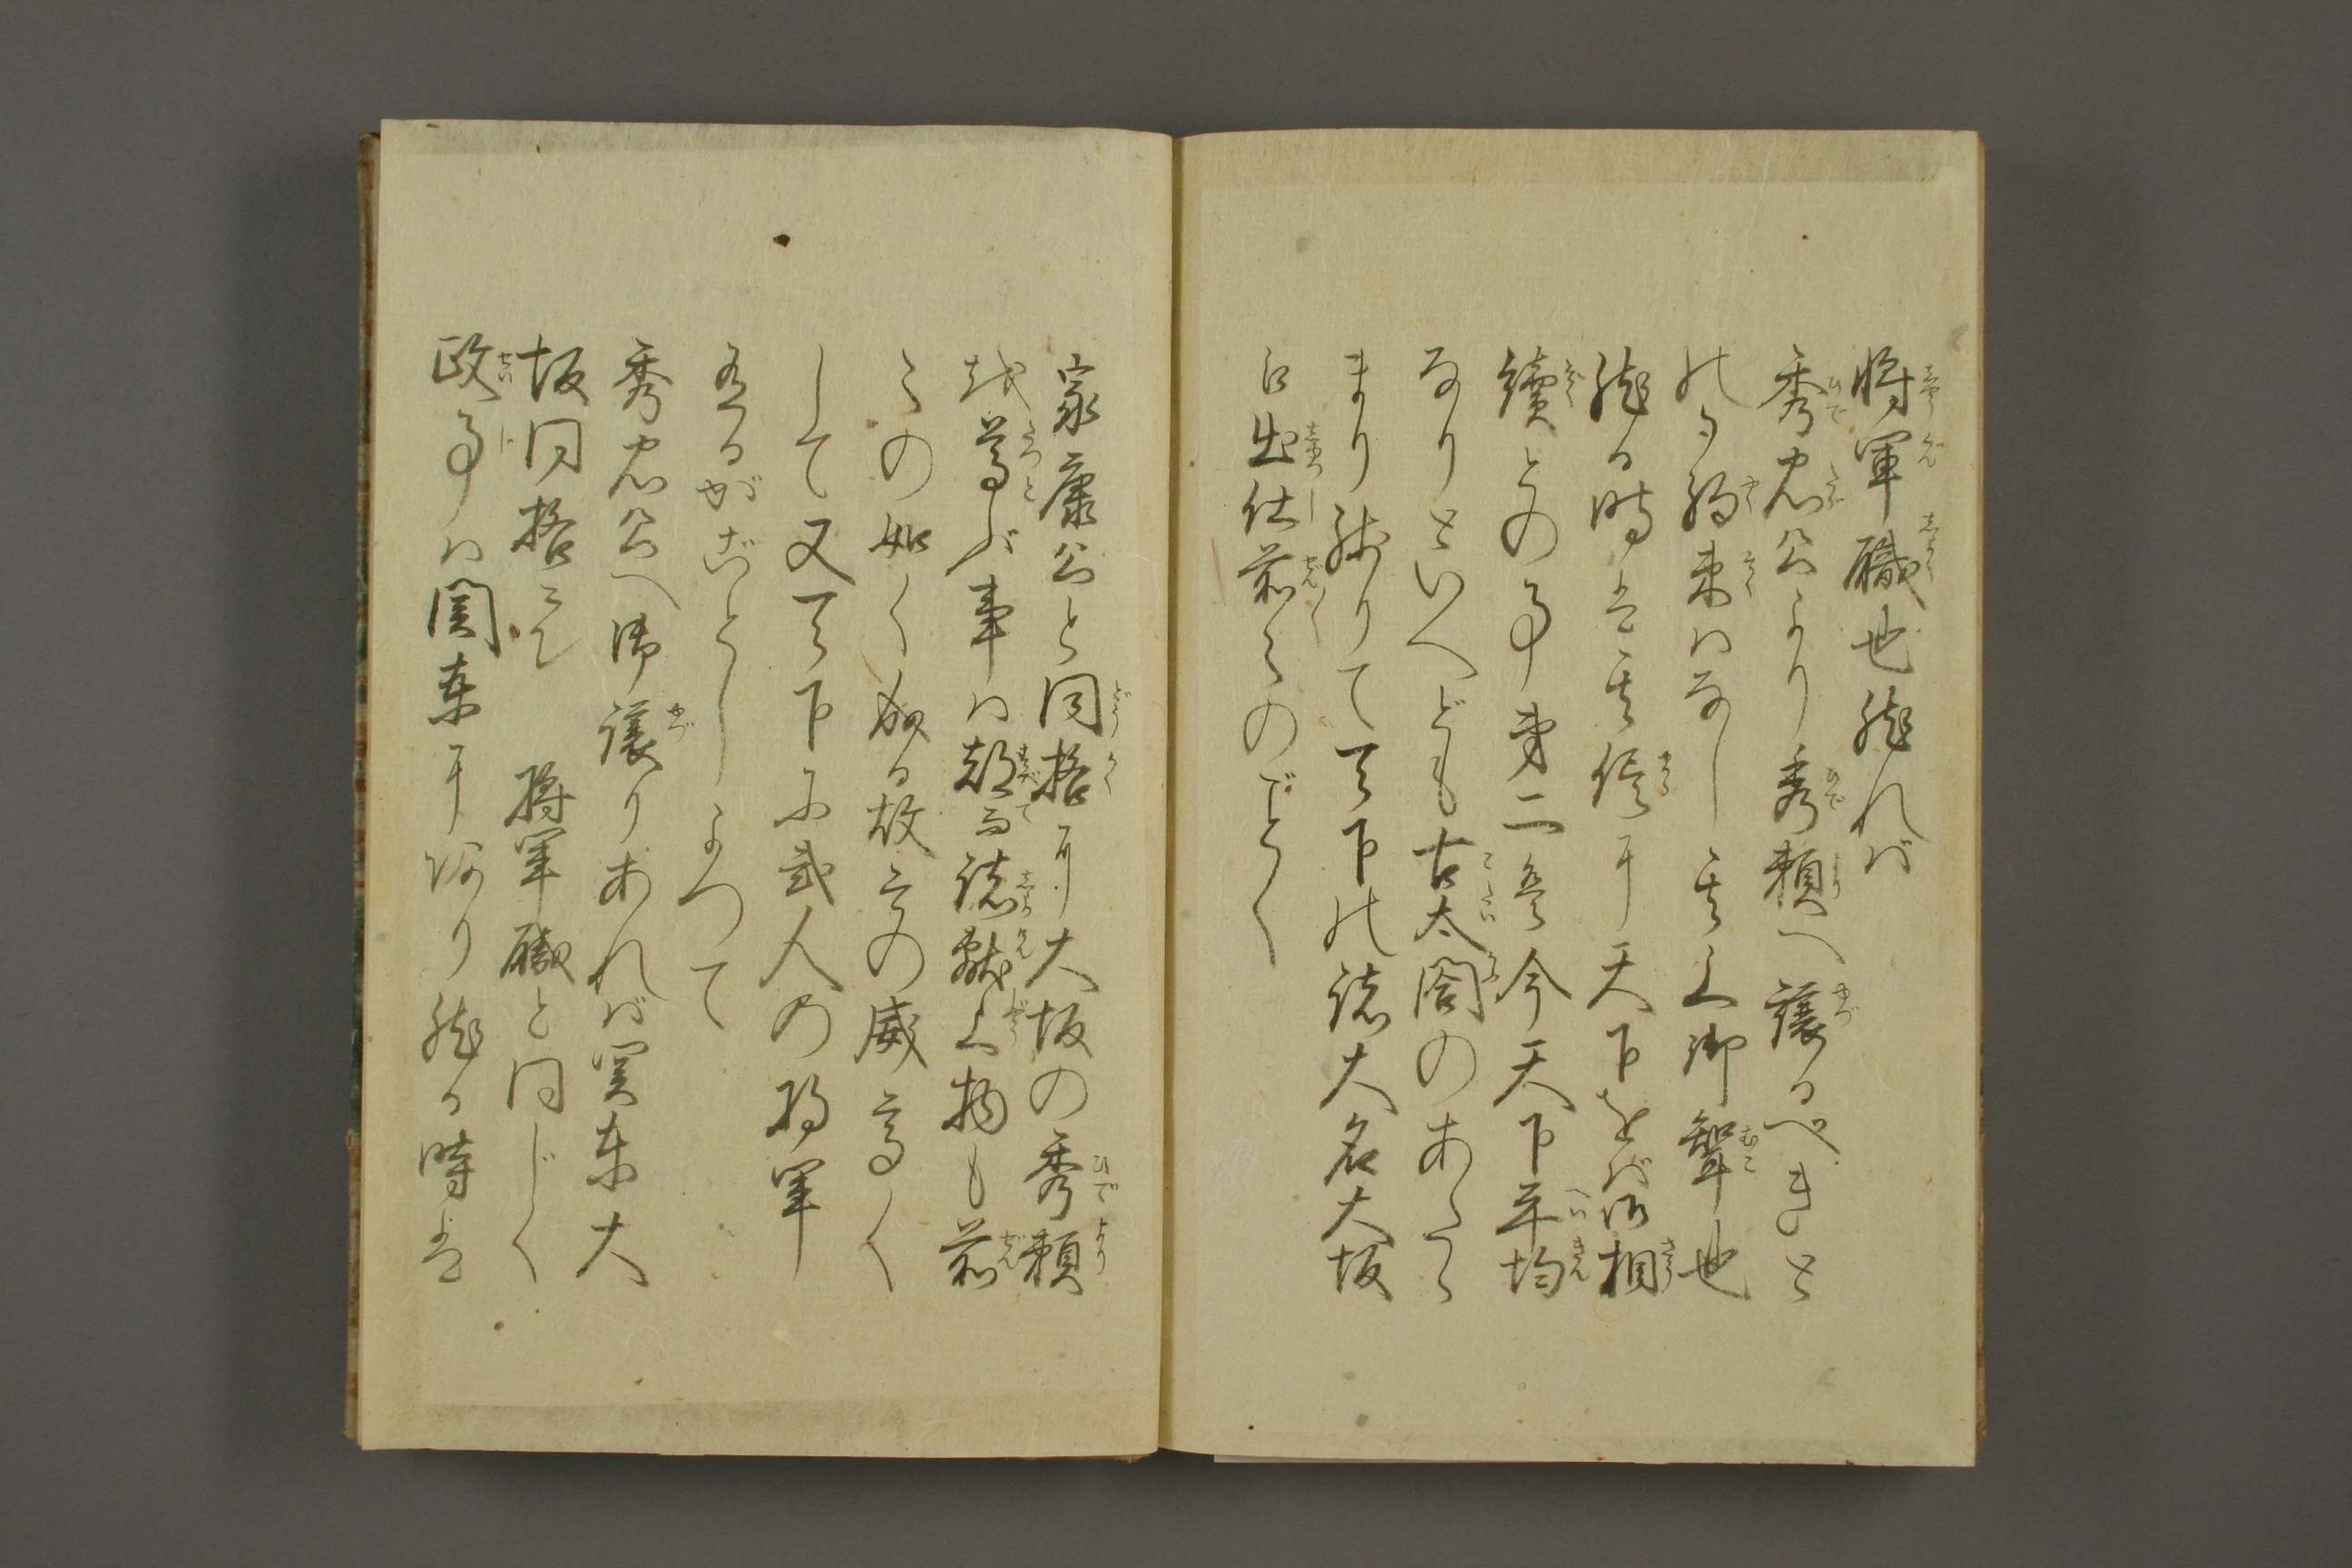 将軍職也然れば
秀忠公より秀頼へ譲るべきと
の御約束はなし其上御聟也
然る時は其侭に天下をば御相
續との事第二は今天下平均
なりといへども古太閤のあたゝ
まり残りて天下の諸大名大坂
に出仕前々のごとく
家康公と同格に大坂の秀頼
を尊ぶ事は都而諸献上物も前
々の如く成る故その威高く
して又天下に弐人の将軍
有るがごとしよつて
秀忠公へ御譲りあれば関東大
坂同格にて 将軍職と同じく
政事は関東にあり然る時は